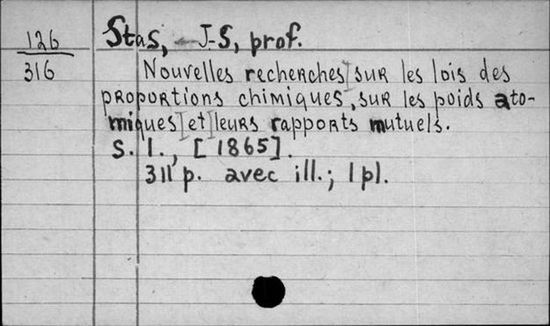 126
316
Stas, J-S, prof.
Nouvelles recherches sur les lois des
proportions chimiques, sur les poids ato-
miques et leurs rapports mutuels.
S. l., [1865].
311 p. avec ill.; 1 pl.